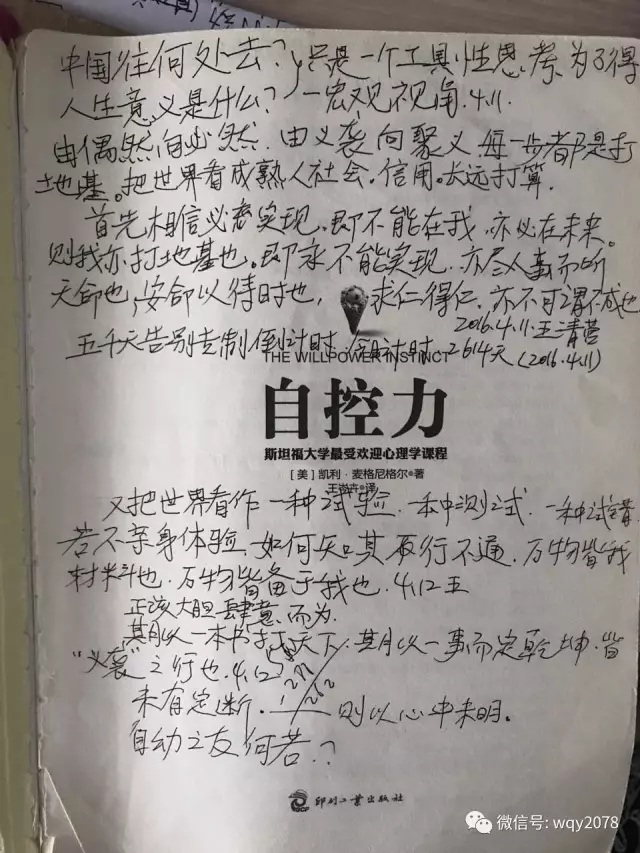 中国往何处去？只是一个工具性思考、为了得
人生意义是什么？一宏观视角.4.11.
由偶然向必然.由义袭向聚义.每一步都是打
地基。把世界看成熟人社会.信用。长远打算.
首先相信必密实现.即不能在我.亦必在未来。
则我亦打地基也。即永不能实现.亦尽人事而听
天命也,安命以待时也,求仁得仁.亦不可谓不成也
2016.4.11.王清营
五千天告别专制倒计时 倒计时 2614天(2016.4.11)
THE WILLPOWER INSTINCT
自控力
斯坦福大学最受欢迎心理学课程
[美]凯利·麦格尼格尔◎著
王岑卉◎译
又把世界看作一种试验.一种测试.一种试错
若不亲身体验.如何知其 行不通.万物皆我
材料也.万物皆备于我也.4.12五
正该大胆肆意而为.
其月以一本书打天下.其月以一事而定乾坤.皆
“义袭”之行也.4.12
未有定断. 则以心中未明。
自幼之友何若.？
印刷工业出版社
微信号: wqy2078